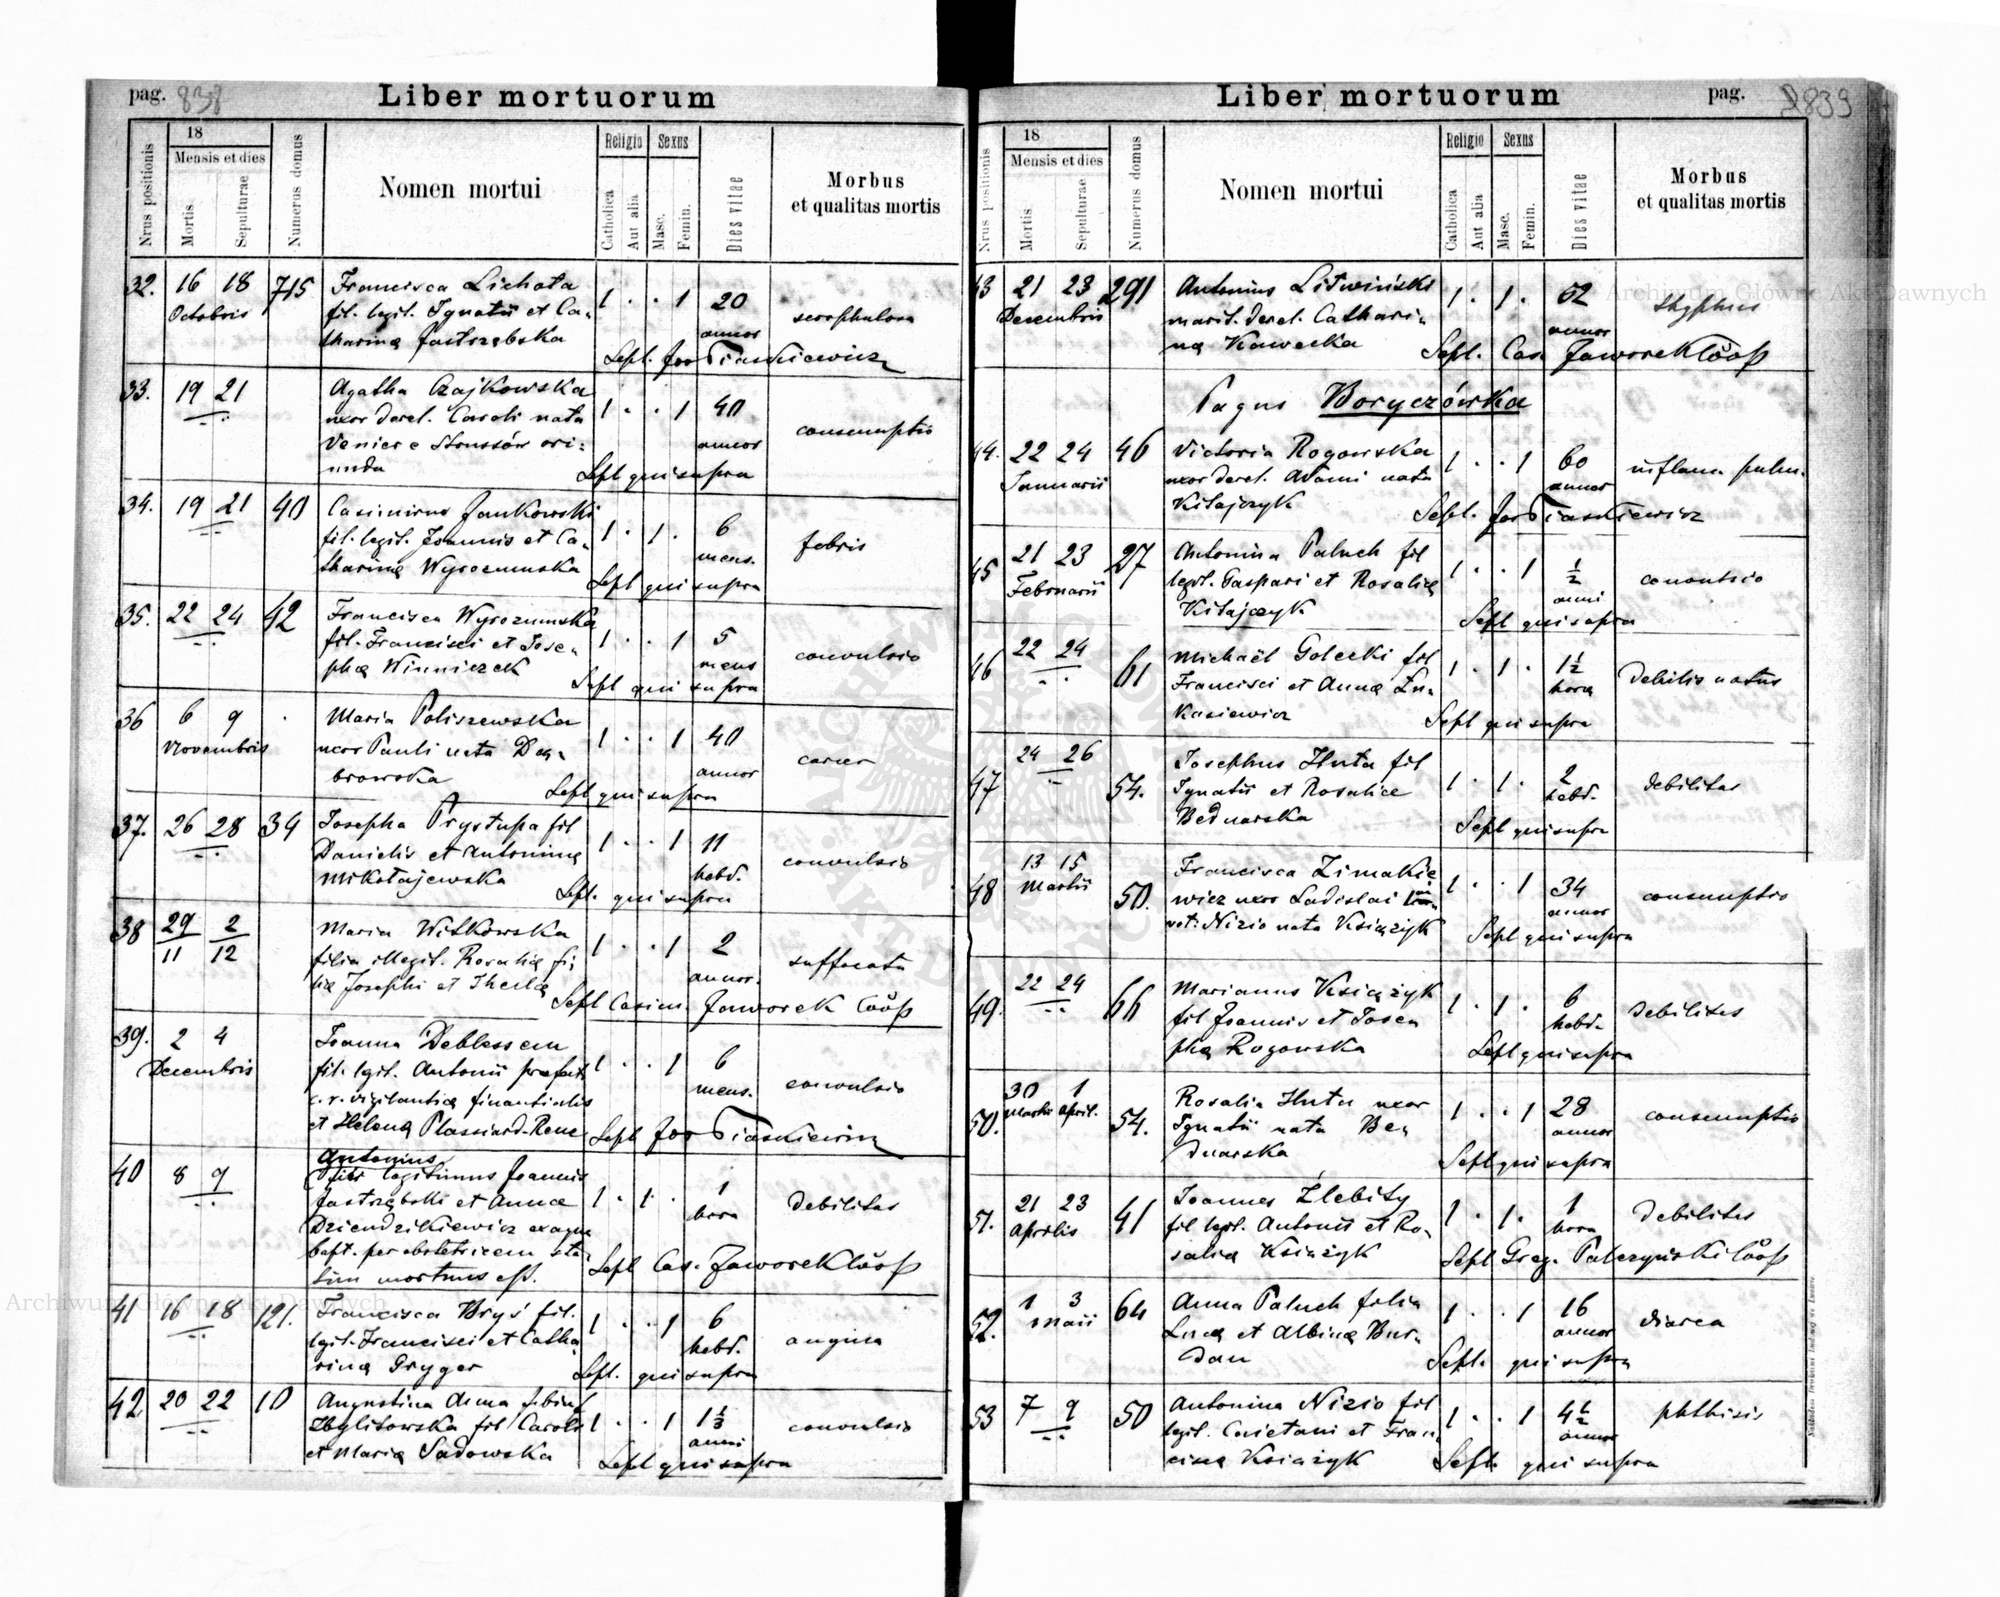 pag. 838
Liber mortuorum
Nrus positionis
18
Mensis et dies
Mortis
Sepulturae
Numerus domus
Nomen mortui
Religio
Catholica
Aut alia
Sexus
Masc.
Femin.
Dies vitae
Morbus
et qualitas mortis
32. 16 18 715 Francisca Lichota 1 . . 1 20
Octobris fil. legit. Ignatii et Ca- annor scrophulosa
tharinę Jastrzębska
Sepl. Jos Tiaskiewicz
33. 19 21 Agatha Czajkowska
uxor derel. Caroli nata 1 . . 1 40
Venier e Strussów ori= annor consumptio
unda
Sepl qui supra
34. 19 21 40 Casimirus Jankowski
fil. legit. Joannis et Ca- 1 . 1 . 6 febris
tharinę Wyrozumska mens.
Sepl qui supra
35. 22 24 42 Francisca Wyrozumska
fil. Francisci et Jose- 1 . . 1 5 convulsio
phę Winniczek mens
Sepl qui supra
36 6 9 . Maria Paliszewska
Novembris uxor Pauli nata Dąm- 1 . . 1 40 cancer
browska annor
Sepl qui supra
37. 26 28 34 Josepha Prystupa fil
Danielis et Antoninę 1 . . 1 11 convulsio
Mikołajewska hebd.
Sepl. qui supra
38 29/11 2/12 Maria Witkowska
filia illegit. Rosalię fi- 1 . . 1 2 suffocata
lię Josephi et Theclę annor.
Sepl Casim. Jaworek Cööp
39. 2 4 Joanna Deblessem
Decembris fil. lgit. Antonii praefecti 1 . . 1 6
c. r. vigilantię finantialis mens. convulsio
et Helenę Plassiard-Rene
Sepl Jos Tiaskiewicz
40 8 9 Antonius
filius legitimus Joannis
Jastrzębski et Annae 1 . 1 . 1 debilitas
Dziendzikiewicz ex aqua hora
bapt. per obstetricem sta-
tim mortuus est.
Sepl Cas. Jaworek Cööp
41 16 18 121. Francisca Bryś fil.
lgit. Francisci et Catha- 1 . . 1 6 angina
rinę Gryger hebd.
Sepl. qui supra
42 20 22 10 Augustina Anna
Zbylitowska fil Caroli 1 . . 1 1 1/3 convulsio
et Marię Sadowska anni
Sepl qui supra
Liber mortuorum
pag. 839
Nrus positionis
18
Mensis et dies
Mortis
Sepulturae
Numerus domus
Nomen mortui
Religio
Catholica
Aut alia
Sexus
Masc.
Femin.
Dies vitae
Morbus
et qualitas mortis
43 21 23 291 Antonius Litwiński 1 . 1 . 52
Decembris marit. derel. Cathari- annor thyphus
nę Kawecka
Sepl. Cas. Jaworek Cööp
Pagus Boryczówka
44. 22 24 46 Victoria Rogowska 1 . . 1 60 inflam pulm.
Januarii uxor derel. Adami nata annor
Kitajczyk
Sepl. Jos Tiaskiewicz
45 21 23 27 Antonina Paluch fil
Februarii legit. Gaspari et Rosalię 1 . . 1 1/2 convulsio
Kitajczyk anni
Sepl qui supra
46 22 24 61 Michaël Golecki fil
Francisci et Annę Łu- 1 . 1 . 1 1/2 debilis natus
kasiewicz hora
Sepl qui supra
47 24 26 54. Josephus Huta fil
Ignatii et Rosaliae 1 . 1 . 2 debilitas
Bednarska hebd.
Sepl qui supra
48 13 15 50. Francisca Zimakie
Martii wicz uxor Ladislai 1 . . 1 34 consumptio
vot: Nizio nata Książyk annor
Sepl qui supra
49. 22 24 66 Marianus Książyk
fil Joannis et Jose- 1 . 1 . 6 debilitas
phę Rogowska hebd.
Sepl qui supra
50. 30 1 54. Rosalia Huta uxor
Martii April. Ignatii nata Be- 1 . . 1 28 consumptio
dnarska annor
Sepl qui supra
51. 21 23 41 Joannes Źlebity
Aprilis fil lgit. Antonii et Ro- 1 . 1 . 1 debilitas
salię Książyk hora
Sepl Greg. Palczyński Cööp
52. 1 3 64 Anna Paluch filia
Maii Lucę et Albinę Bur- 1 . . 1 16 diarea
dan annor
Sepl. qui supra
53 7 9 50 Antonina Nizio fil
legit. Caietani et Fran- 1 . . 1 4 1/2 phthisis
ciscę Książyk annor
Sepl. qui supra
Archiwum Główne Akt Dawnych
Archiwum Główne Akt Dawnych
ARCHIWUM GŁÓWNE AKT DAWNYCH